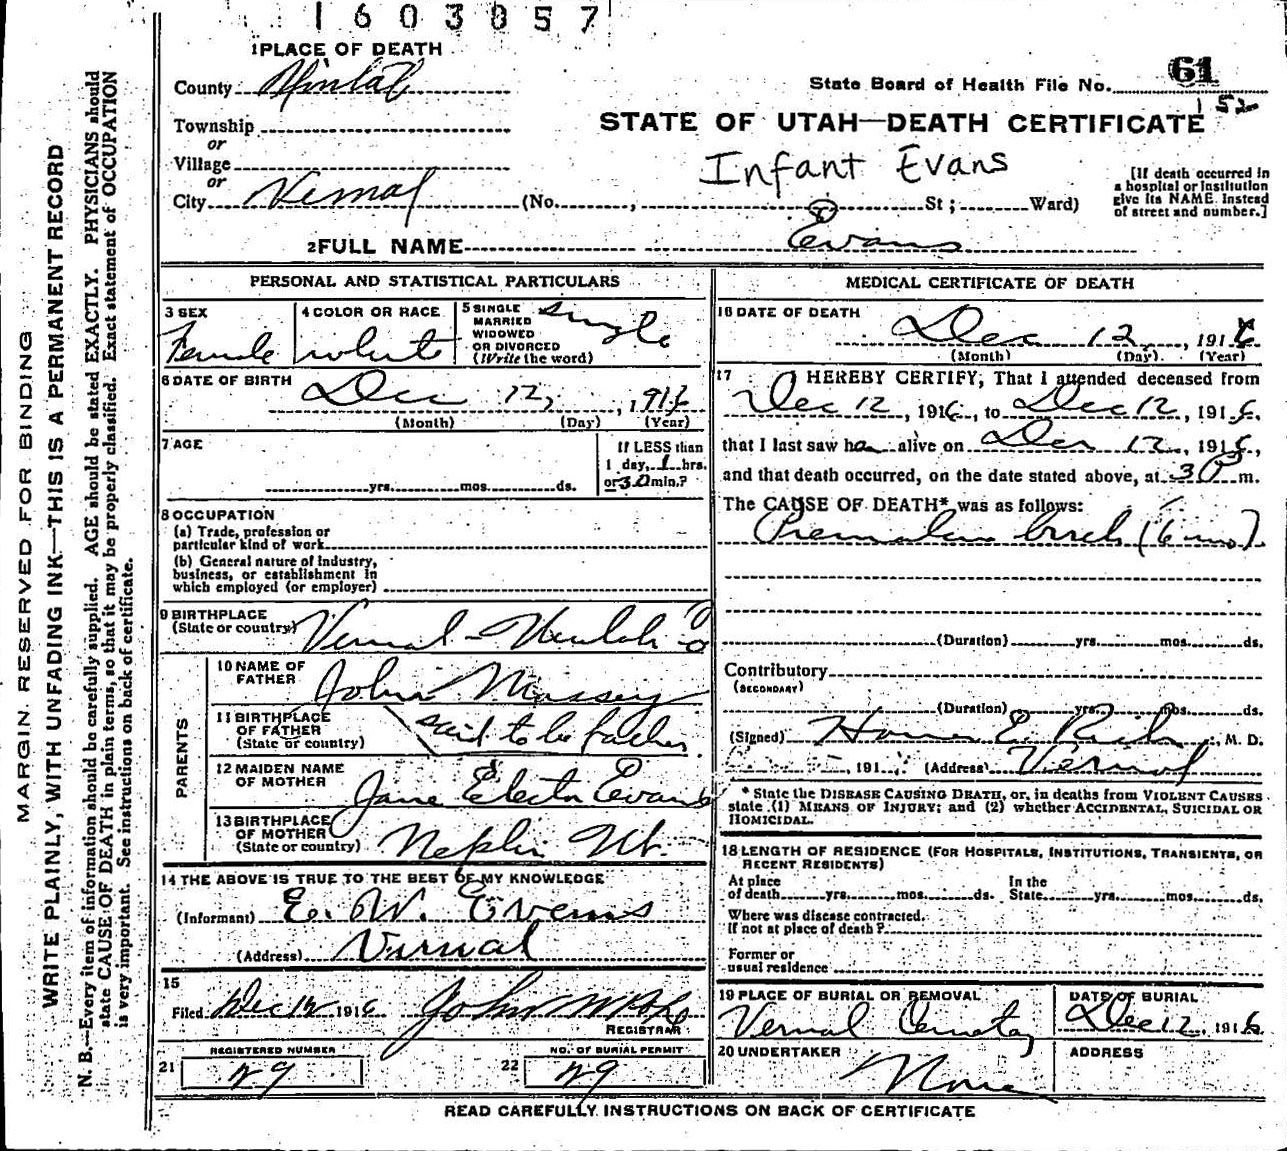 1603057
1 PLACE OF DEATH
County Uintah
Township
or
Village
or
City Vernal (No. , St; Ward)
State Board of Health File No. 61
152
STATE OF UTAH—DEATH CERTIFICATE
Infant Evans
[If death occurred in a hospital or institution give its NAME instead of street and number.]
2 FULL NAME Evans
PERSONAL AND STATISTICAL PARTICULARS
3 SEX Female
4 COLOR OR RACE white
5 SINGLE MARRIED WIDOWED OR DIVORCED (Write the word) single
6 DATE OF BIRTH Dec 12, 1916
(Month) (Day) (Year)
7 AGE yrs. mos. ds.
If LESS than 1 day, 1 hrs. or 30 min.?
8 OCCUPATION
(a) Trade, profession or particular kind of work
(b) General nature of industry, business, or establishment in which employed (or employer)
9 BIRTHPLACE (State or country) Vernal
PARENTS
10 NAME OF FATHER John Massey
11 BIRTHPLACE OF FATHER (State or country) said to be father
12 MAIDEN NAME OF MOTHER Jane Electa Evans
13 BIRTHPLACE OF MOTHER (State or country) Nephi Ut.
14 THE ABOVE IS TRUE TO THE BEST OF MY KNOWLEDGE
(Informant) E. W. Evans
(Address) Vernal
15
Filed Dec 12 1916 John
REGISTRAR
REGISTERED NUMBER
21 29
NO. OF BURIAL PERMIT
22 29
MEDICAL CERTIFICATE OF DEATH
16 DATE OF DEATH Dec 12, 1916
(Month) (Day) (Year)
17 I HEREBY CERTIFY, That I attended deceased from
Dec 12, 1916, to Dec 12, 1916,
that I last saw her alive on Dec 12, 1916,
and that death occurred, on the date stated above, at 3 P m.
The CAUSE OF DEATH* was as follows:
Premature birth (6 mo).
(Duration) yrs. mos. ds.
Contributory
(SECONDARY)
(Duration) yrs. mos. ds.
(Signed) Homer E. Rich, M. D.
, 191 , (Address) Vernal
* State the DISEASE CAUSING DEATH, or, in deaths from VIOLENT CAUSES
state (1) MEANS OF INJURY; and (2) whether ACCIDENTAL, SUICIDAL OR
HOMICIDAL.
18 LENGTH OF RESIDENCE (FOR HOSPITALS, INSTITUTIONS, TRANSIENTS, OR
RECENT RESIDENTS)
At place of death yrs. mos. ds. In the State yrs. mos. ds.
Where was disease contracted.
if not at place of death?
Former or
usual residence
19 PLACE OF BURIAL OR REMOVAL Vernal Cemetery
DATE OF BURIAL Dec 12, 1916
20 UNDERTAKER None
ADDRESS
READ CAREFULLY INSTRUCTIONS ON BACK OF CERTIFICATE
MARGIN RESERVED FOR BINDING
WRITE PLAINLY, WITH UNFADING INK—THIS IS A PERMANENT RECORD
N. B.—Every item of information should be carefully supplied. AGE should be stated EXACTLY. PHYSICIANS should
state CAUSE OF DEATH in plain terms, so that it may be properly classified. Exact statement of OCCUPATION
is very important. See instructions on back of certificate.